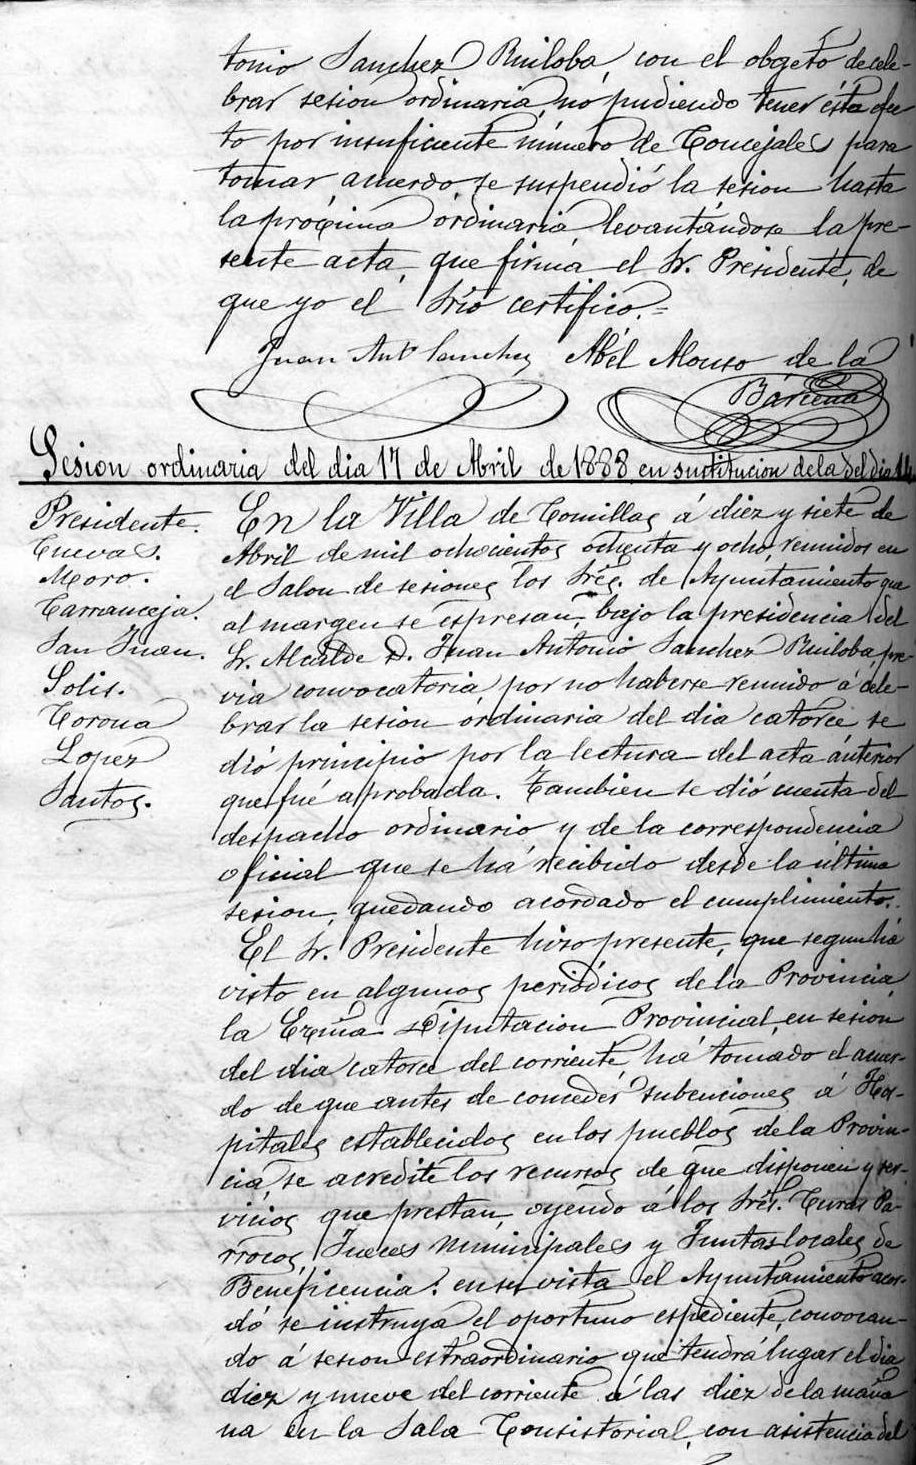 tonio Sanchez Ruiloba, con el obgeto de cele-
brar sesion ordinaria, no pudiendo tener ésta efec
to por insuficiente número de Concejales para
tomar acuerdo, se suspendió la sesion hasta
la próxima órdinaria levantándose la pre-
sente acta, que firma el Sr. Presidente, de
que yo el Srio certifico.=
Juan Ant Sanchez Abél Alonso de la
Bárcena
Sesion ordinaria del dia 17 de Abril de 1888 en sustitucion de la del dia 14
Presidente.
Cuevas.
Moro.
Carranceja.
San Juan.
Solis.
Corona
Lopez
Santos.
En la Villa de Comillas á diez y siete de
Abril de mil ochocientos ochenta y ocho, reunidos en
el Salon de sesiones los Sres. de Ayuntamiento que
al margen se espresan, bajo la presidencia del
Sr. Alcalde D. Juan Antonio Sanchez Ruiloba, pre-
via convocatoria por no haberse reunido á cele-
brar la sesion órdinaria del dia catorce se
dió principio por la lectura del acta ánterior
que fué aprobada. Tambien se dió cuenta del
despacho ordinario y de la correspondencia
oficial que se há recibido desde la última
sesion, quedando acordado el cumplimiento.
El Sr. Presidente hizo presente, que segun há
visto en algunos periódicos de la Provincia,
la Exma Diputacion Provincial, en sesion
del dia catorce del corriente, há tomado el acuer-
do de que antes de conceder subenciones á Hos-
pitales establecidos en los pueblos de la Provin-
cia se acredite los recursos de que disponen y ser-
vicios que prestan, oyendo á los Sres. Curas Pá-
rrocos, Jueces Municipales y Juntas locales de
Beneficencia: en su vista el Ayuntamiento acor-
dó se instruya el oportuno espediente, convocan-
do á sesion estraordinario que tendrá lugar el dia
diez y nueve del corriente á las diez de la maña
na en la Sala Consistorial, con asistencia del